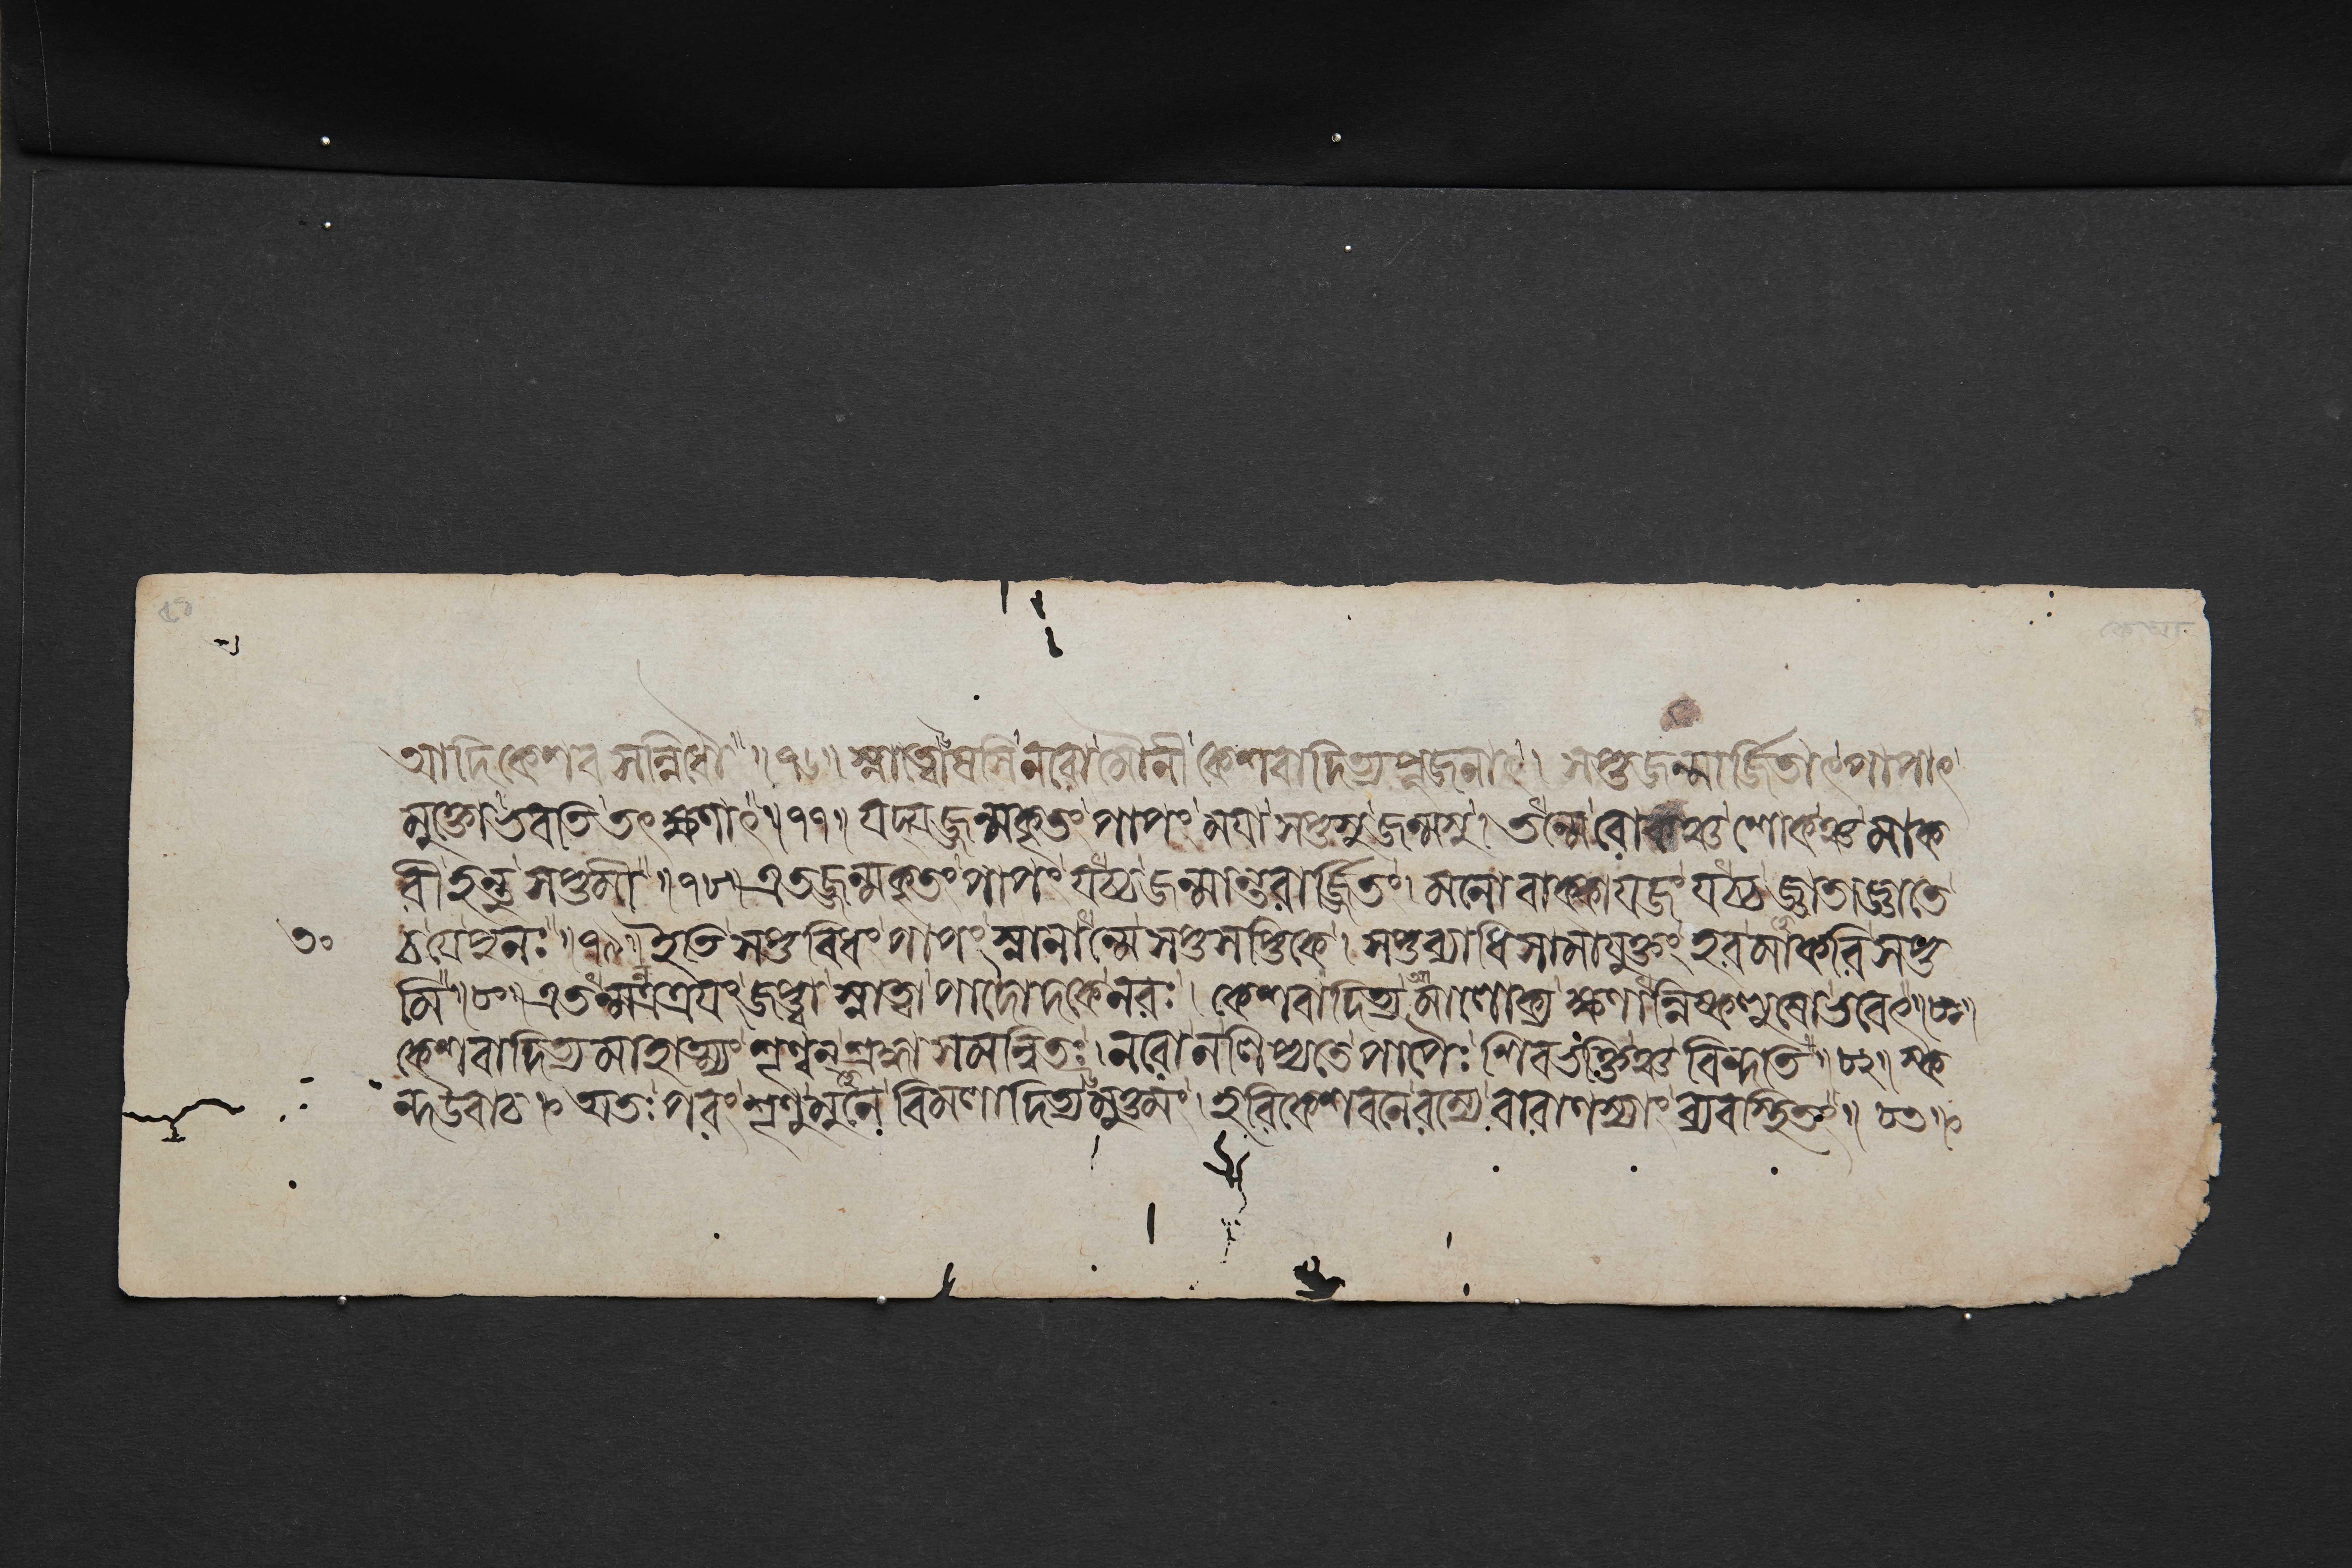 আদিকেশব সন্নিধৌ॥ ৭৬॥ স্নাত্বোষসি নরো মৌনী কেশবাদিত্যপূজনাৎ। সপ্তজন্মার্জ্জিতাৎ পাপাৎ
মুক্তো ভবতি তৎক্ষণাৎ॥ ৭৭॥ যদ্যজ্জন্মকৃতং পাপং ময়া সপ্তসু জন্মসু। তন্মে রোগঞ্চ শোকঞ্চ মাক
রী হন্তু সপ্তমী॥ ৭৮॥ এতজ্জন্মকৃতং পাপং যচ্চ জন্মান্তরার্জ্জিতং। মনোবাক্কায়জং যচ্চ জ্ঞাতাজ্ঞাতে
৩০
চ যে পুনঃ॥ ৭৯॥ ইতি সপ্তবিধং পাপং স্নানান্মে সপ্তসপ্তিকে। সপ্তব্যাধিসমাযুক্তং হর মাকরি সপ্ত
মি॥ ৮০॥ এতন্মন্ত্রত্রয়ং জপ্ত্বা স্নাত্বা পাদোদকে নরঃ। কেশবাদিত্যমালোক্য ক্ষণান্নিষ্কলুষো ভবেৎ॥ ৮১॥
কেশবাদিত্যমাহাত্ম্যং শৃণ্বন্ শ্রদ্ধাসমন্বিতঃ। নরো ন লিপ্যতে পাপৈঃ শিবভক্তিঞ্চ বিন্দতি॥ ৮২॥ স্ক
ন্দ উবাচ॥ অতঃপরং শৃণু মুনে বিমলাদিত্যমুত্তমং। হরিকেশবনে রম্যে বারাণস্যাং ব্যবস্থিতং॥ ৮৩॥